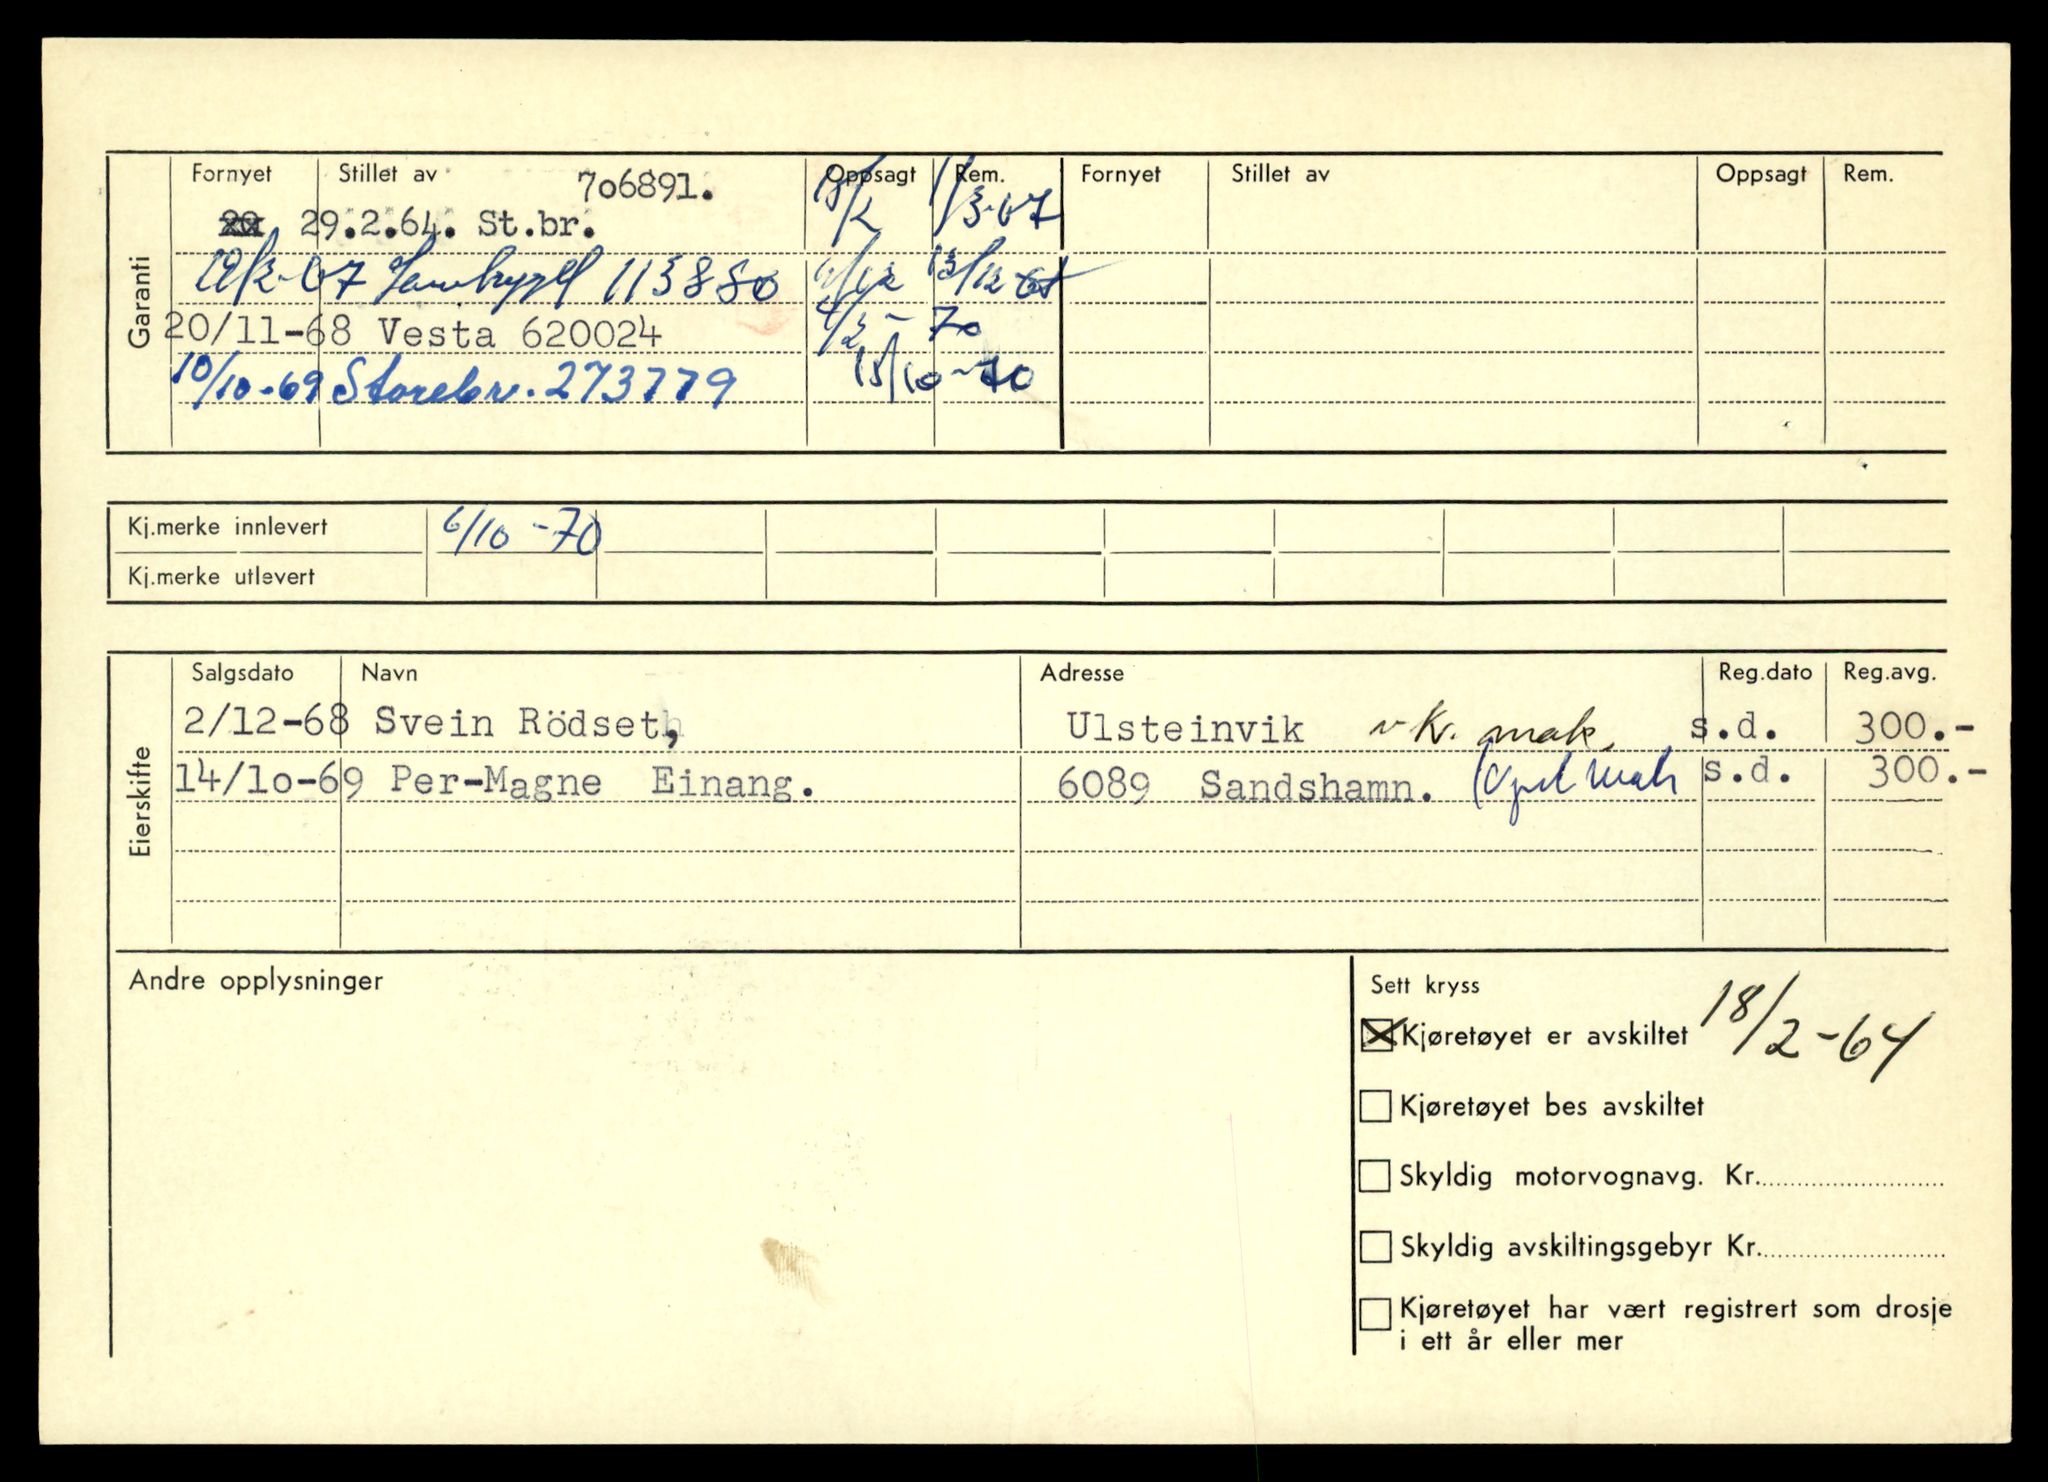 Garanti
Fornyet Stillet av Oppsagt Rem. Fornyet Stillet av Oppsagt Rem.
706891.
29.2.64. St.br. 18/2 1/3-67
19/2-67 113880 13/12-68
20/11-68 Vesta 620024 4/2-70
10/10-69 Storebr. 273779 15/10-70
Kj.merke innlevert 6/10-70
Kj.merke utlevert
Eierskifte
Salgsdato Navn Adresse Reg.dato Reg.avg.
2/12-68 Svein Rödset, Ulsteinvik v Kr. mak. s.d. 300.-
14/10-69 Per-Magne Einang. 6089 Sandshamn. s.d. 300.-
Andre opplysninger
Sett kryss
Kjøretøyet er avskiltet 18/2-64
Kjøretøyet bes avskiltet
Skyldig motorvognavg. Kr.
Skyldig avskiltingsgebyr Kr.
Kjøretøyet har vært registrert som drosje
i ett år eller mer